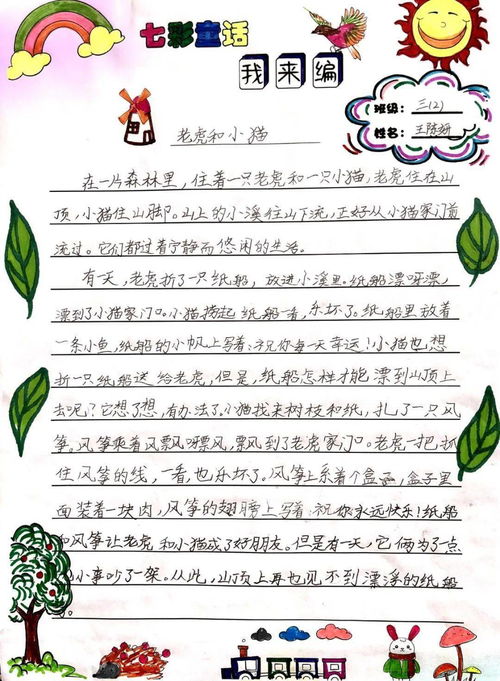 七彩童话
我来编
班级：三(2)
姓名：王陈妍
老虎和小猫
在一片森林里，住着一只老虎和一只小猫，老虎住在山
顶，小猫住山脚。山上的小溪往山下流，正好从小猫家门前
流过。它们都过着宁静而悠闲的生活。
有天，老虎折了一只纸船，放进小溪里。纸船漂呀漂，
漂到了小猫家门口。小猫捞起纸船一看，乐坏了。纸船里放着
一条小鱼，纸船的小帆上写着：祝你每一天幸运！小猫也想
折一只纸船送给老虎，但是，纸船怎样才能漂到山顶上
去呢？它想了想，有办法了。小猫找来树枝和纸，扎了一只风
筝。风筝乘着风飘呀飘，飘到了老虎家门口。老虎一把抓
住风筝的线，一看，也乐坏了。风筝上系着个盒子，盒子里
面装着一块肉，风筝的翅膀上写着：祝你永远快乐！纸船
和风筝让老虎和小猫成了好朋友。但是有一天，它俩为了一点
小事吵了一架。从此，山顶上再也见不到漂浮的纸船